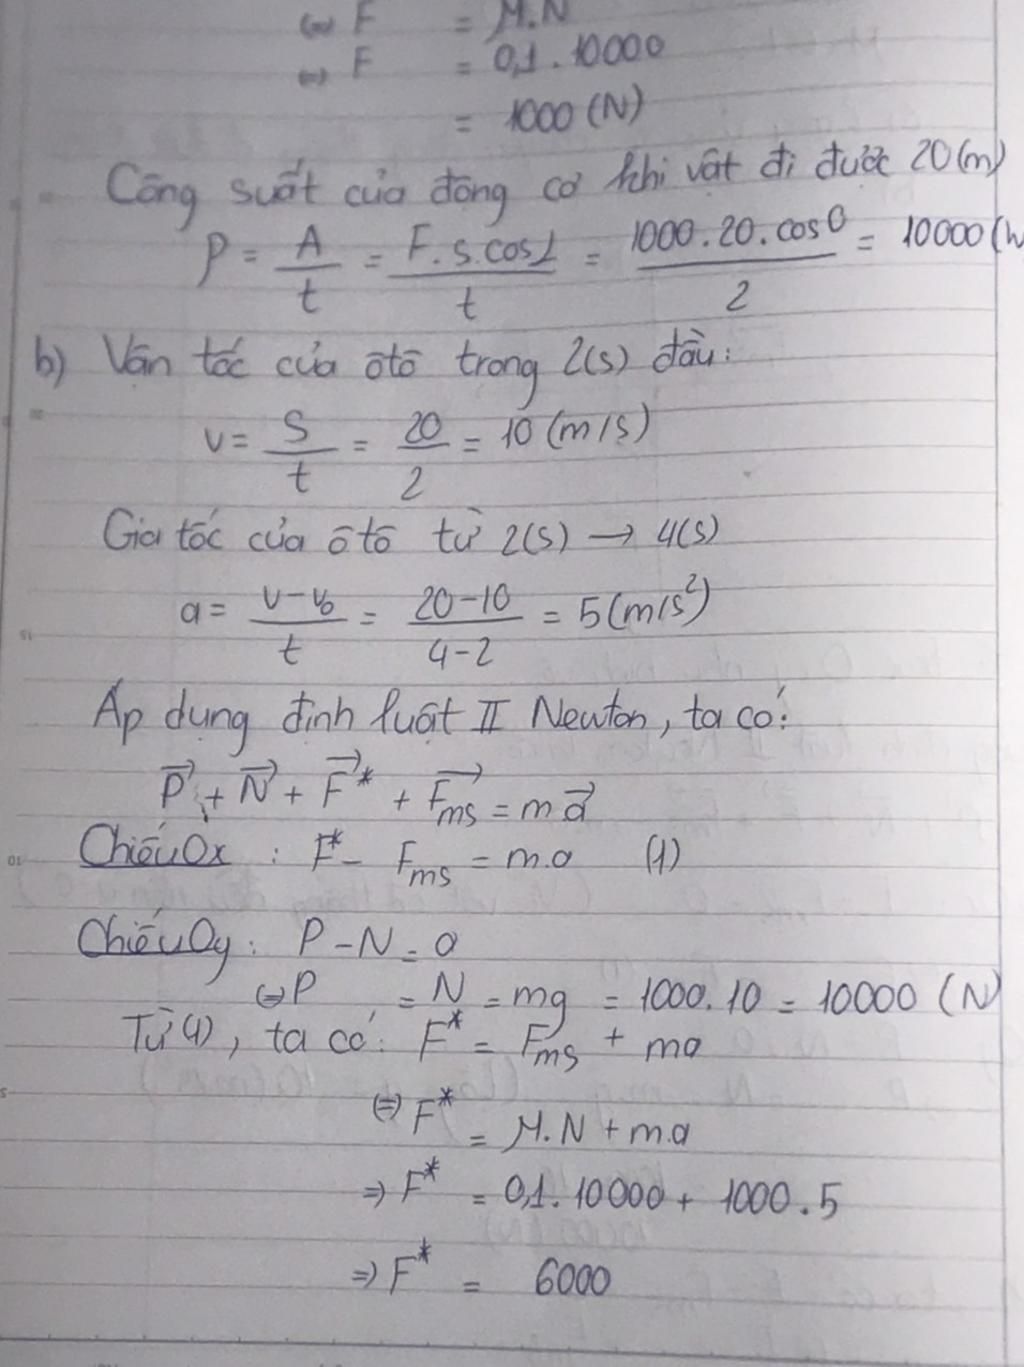 ⇔ F = μ.N
⇔ F = 0,1 . 10000
= 1000 (N)
Công suất của động cơ khi vật đi được 20(m)
P = A/t = F.s.cosα/t = 1000.20.cos0/2 = 10000 (W
b) Vận tốc của ôtô trong 2(s) đầu:
v = S/t = 20/2 = 10 (m/s)
Gia tốc của ô tô từ 2(s) → 4(s)
a = v-v₀/t = 20-10/4-2 = 5 (m/s²)
Áp dụng định luật II Newton, ta có:
P⃗ + N⃗ + F⃗* + F⃗ms = ma⃗
Chiếu Ox : F* - Fms = m.a (1)
Chiếu Oy : P - N = 0
⇔ P = N = mg = 1000.10 = 10000 (N)
Từ (1), ta có: F* = Fms + ma
⇔ F* = μ.N + m.a
⇒ F* = 0,1.10000 + 1000.5
⇒ F* = 6000